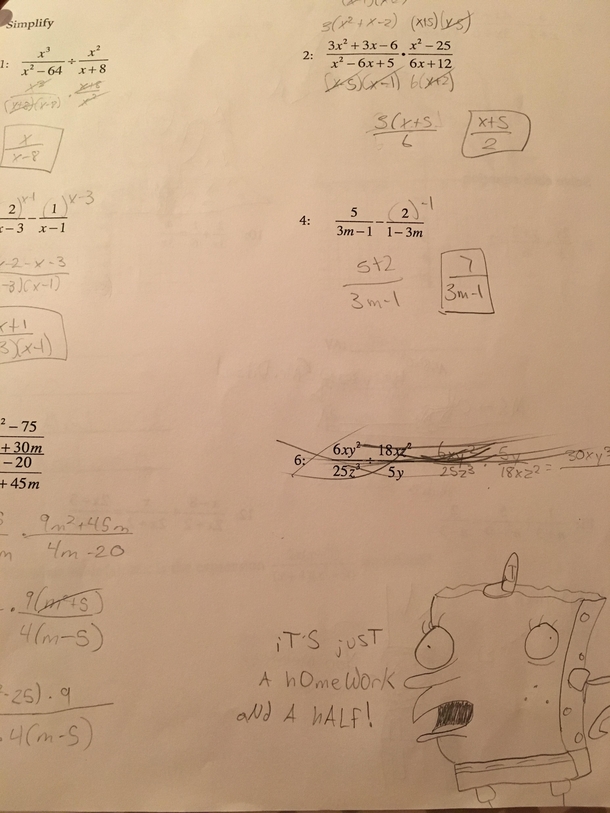 Simplify
1: x³/(x² − 64) ÷ x²/(x + 8)
x/(x-8)
3(x²+x-2) (x+5)(x-5)
2: (3x² + 3x − 6)/(x² − 6x + 5) · (x² − 25)/(6x + 12)
(x-5)(x-1) 6(x+2)
3(x+5)/6 (x+5)/2
2/(x − 3) − 1/(x − 1)
x-1 x-3
-2-x-3
-3)(x-1)
x+1
3)(x-1)
4: 5/(3m − 1) − 2/(1 − 3m) -1
(5+2)/(3m-1) 7/(3m-1)
² − 75
+ 30m
− 20
+ 45m
(9m²+45m)/(4m-20)
· 9(m²+5)/4(m-5)
-25) · 9
· 4(m-5)
6: 6xy²/25z³ ÷ 18xz²/5y 6xy²/25z³ · 5y/18xz² = 30xy³
T
iT'S jUST
A hOMeWORK
aNd A hALf!